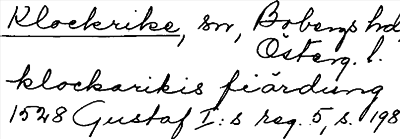 Klockrike, sn, Bobergs hd
Österg. l.
klockarikis fiärdung
1528 Gustaf I:s reg. 5, s. 198